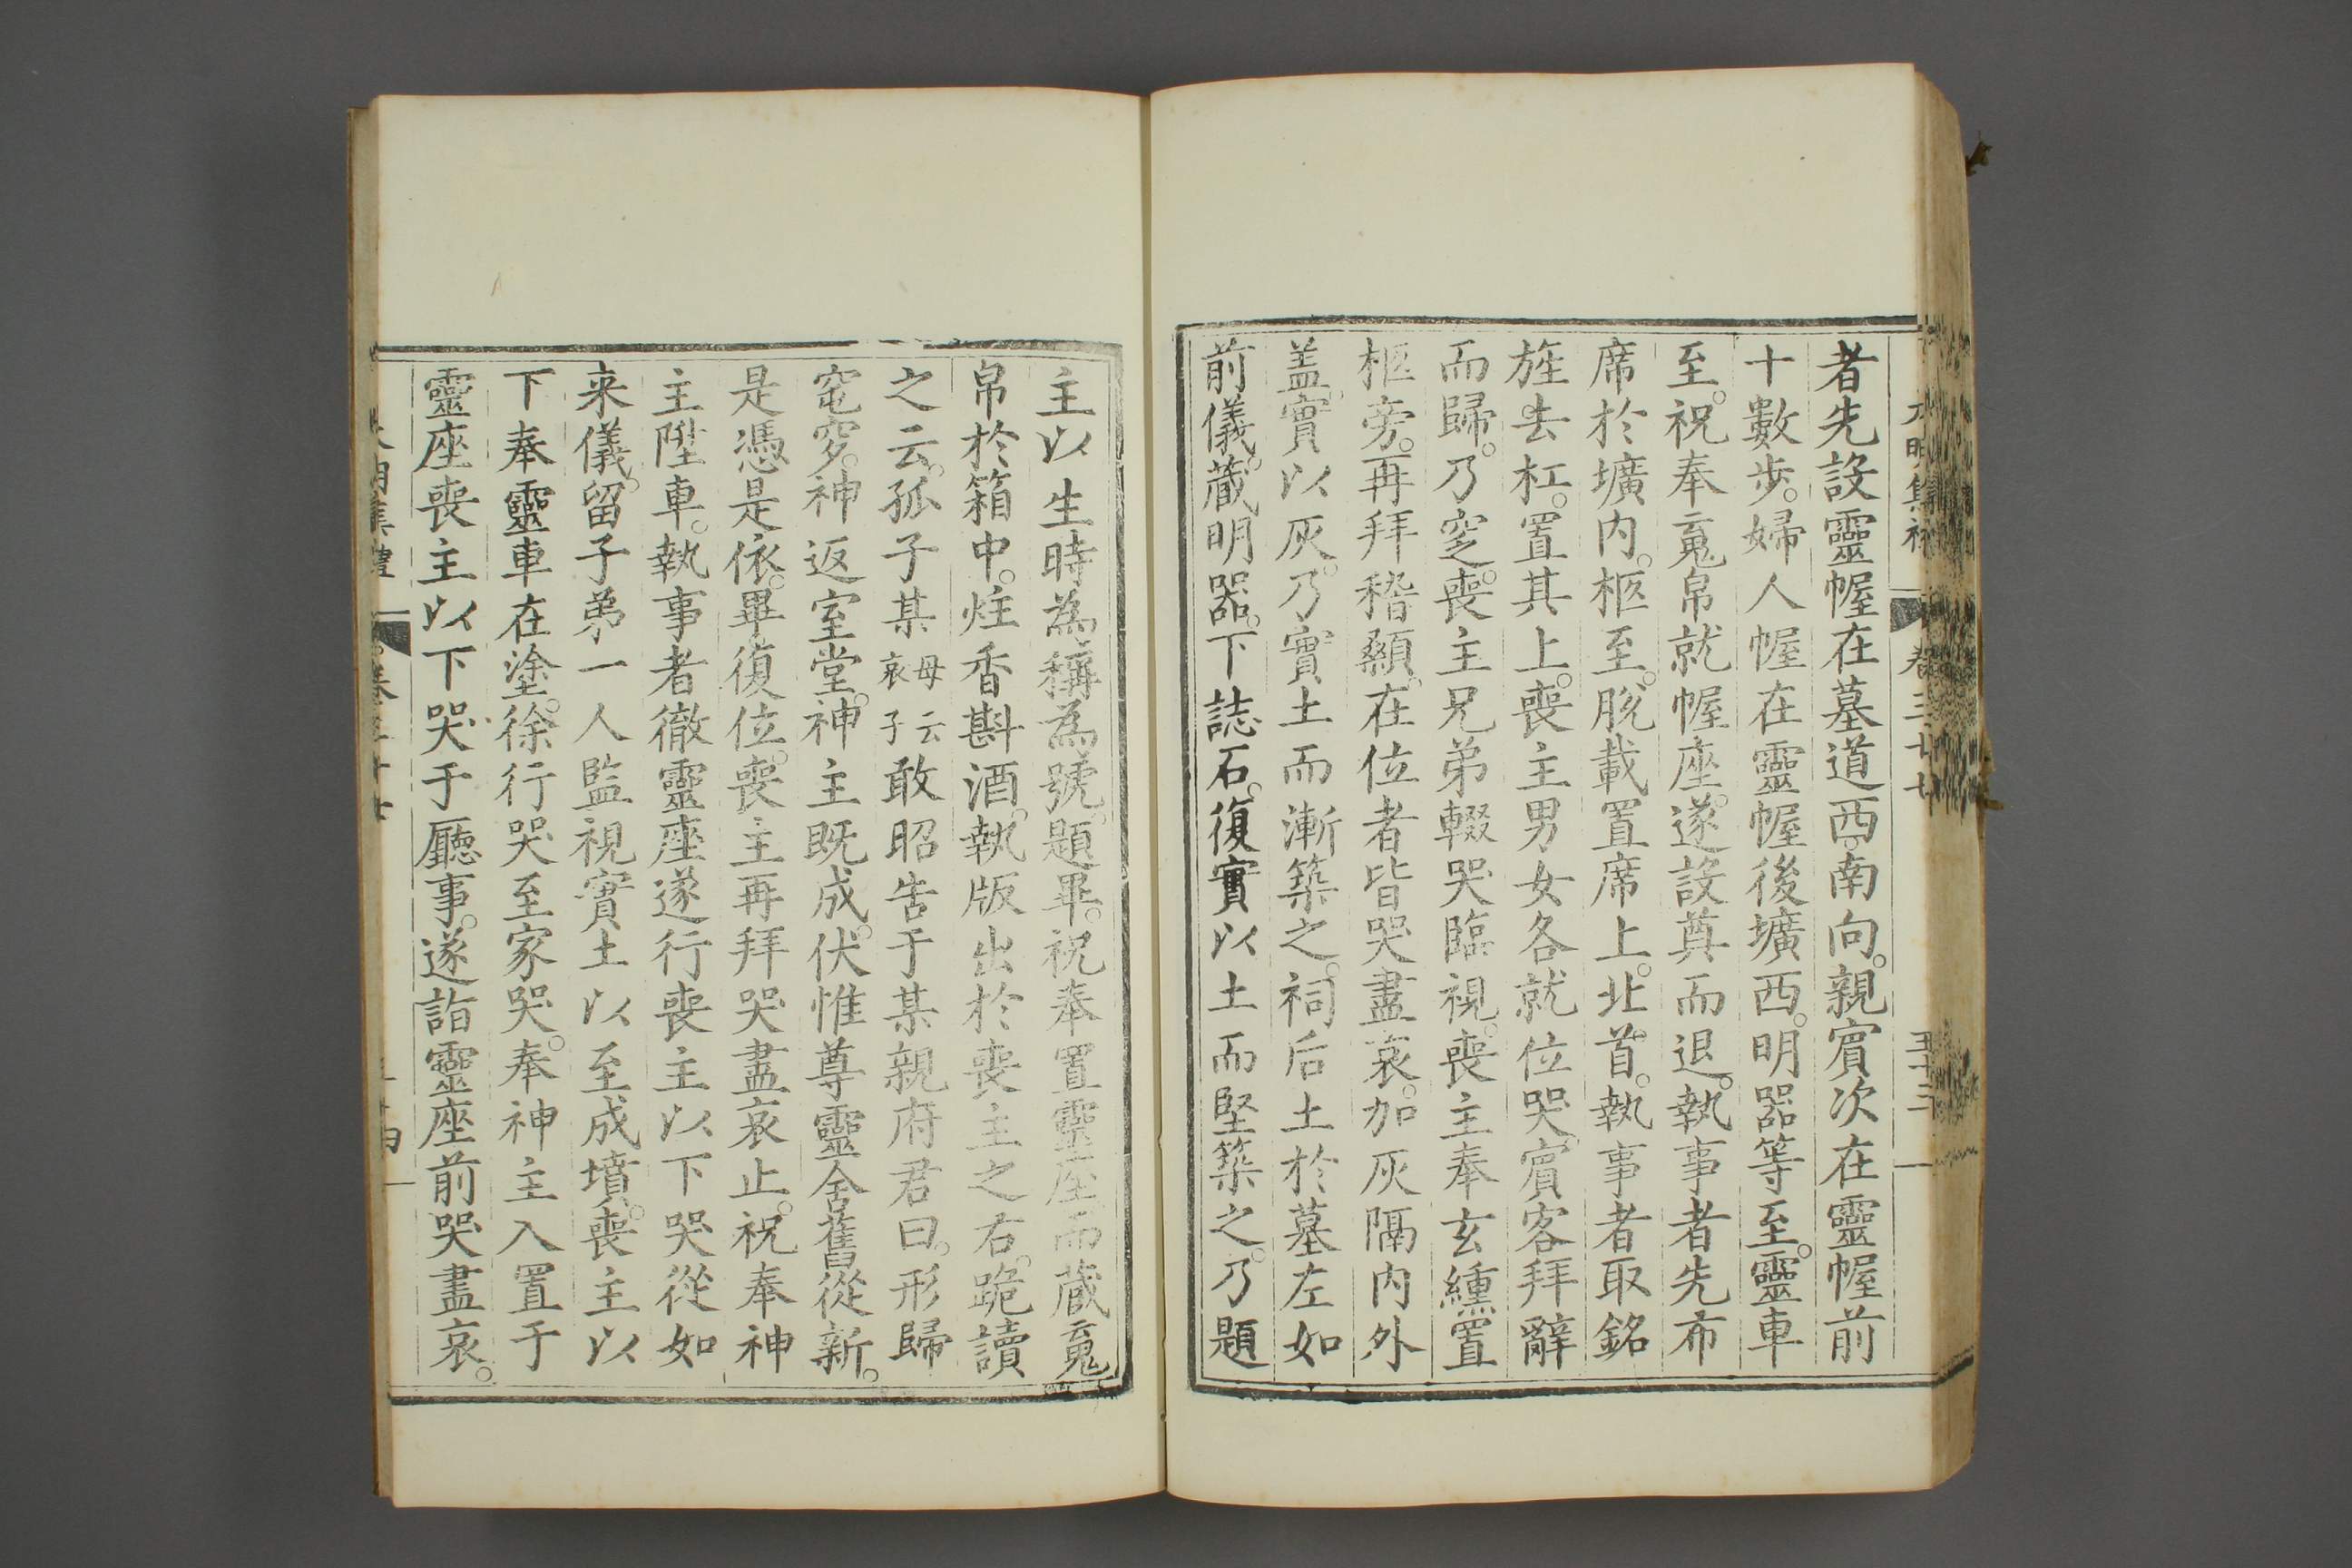 者先設靈幄在墓道西。南向。親賓次在靈幄前
十數步。婦人幄在靈幄後壙西。明器等至。靈車
至。祝奉䰟帛就幄座。遂設奠而退。執事者先布
席於壙內。柩至。脫載置席上。北首。執事者取銘
旌去杠。置其上。喪主男女各就位哭。賓客拜辭
而歸。乃窆。喪主兄弟輟哭臨視。喪主奉玄纁置
柩旁。再拜稽顙。在位者皆哭盡哀。加灰隔內外
盖。實以灰。乃實土而漸築之。祠后土於墓左如
前儀。蔵明器。下誌石。復實以土而堅築之。乃題
主以生時為稱為號。題畢。祝奉置靈座而蔵䰟
帛於箱中。炷香斟酒。執版出於喪主之右。跪讀
之云。孤子某母云哀子敢昭告于某親府君曰。形歸
窀穸。神返室堂。神主既成。伏惟尊靈舍舊從新。
是憑是依。畢復位。喪主再拜哭盡哀止。祝奉神
主陞車。執事者徹靈座遂行喪主以下哭從如
来儀。留子弟一人監視實土以至成墳。喪主以
下奉靈車在塗。徐行哭至家哭。奉神主入置于
靈座喪主以下哭于廳事。遂詣靈座前哭盡哀。